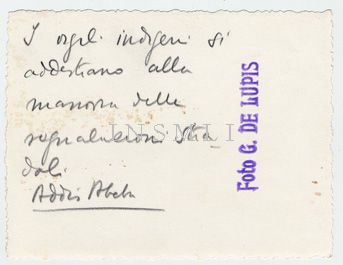 I vigili indigeni si
addestrano alla
manovra delle
segnalazioni stra
dali.
Addis Abeba
Foto G. DE LUPIS
INSMLI